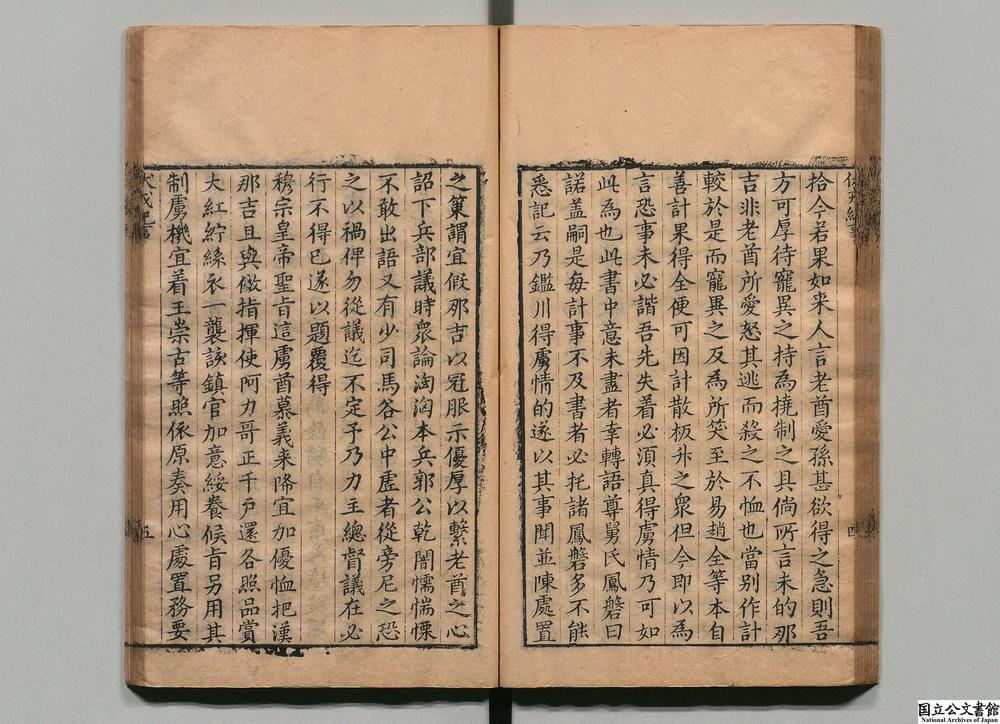 拾今若果如来人言老酋愛孫甚欲得之急則吾
方可厚待寵異之持為撓制之具倘所言未的那
吉非老酋所愛怒其逃而殺之不恤也當别作計
較於是而寵異之反為所笑至於易趙全等本自
善計果得全便可因計散板升之衆但今即以為
言恐事未必諧吾先失着必湏真得虜情乃可如
此為也此書中意未盡者幸轉語尊舅氏鳳磐曰
諾盖嗣是每計事不及書者必托諸鳳磐多不能
悉記云乃鑑川得虜情的遂以其事聞並陳處置
之策謂宜假那吉以冠服示優厚以繫老酋之心
詔下兵部議時衆論洶洶本兵郭公乾闇懦惴慄
不敢出語又有少司馬谷公中虚者從旁尼之恐
之以禍俾勿從議迄不定予乃力主總督議在必
行不得已遂以題覆得
穆宗皇帝聖旨這虜酋慕義来降宜加優恤把漢
那吉且與做指揮使阿力哥正千戶還各照品賞
大紅紵絲衣一襲該鎮官加意綏養候旨另用其
制虜機宜着王崇古等照依原奏用心處置務要
五
国立公文書館
National Archives of Japan